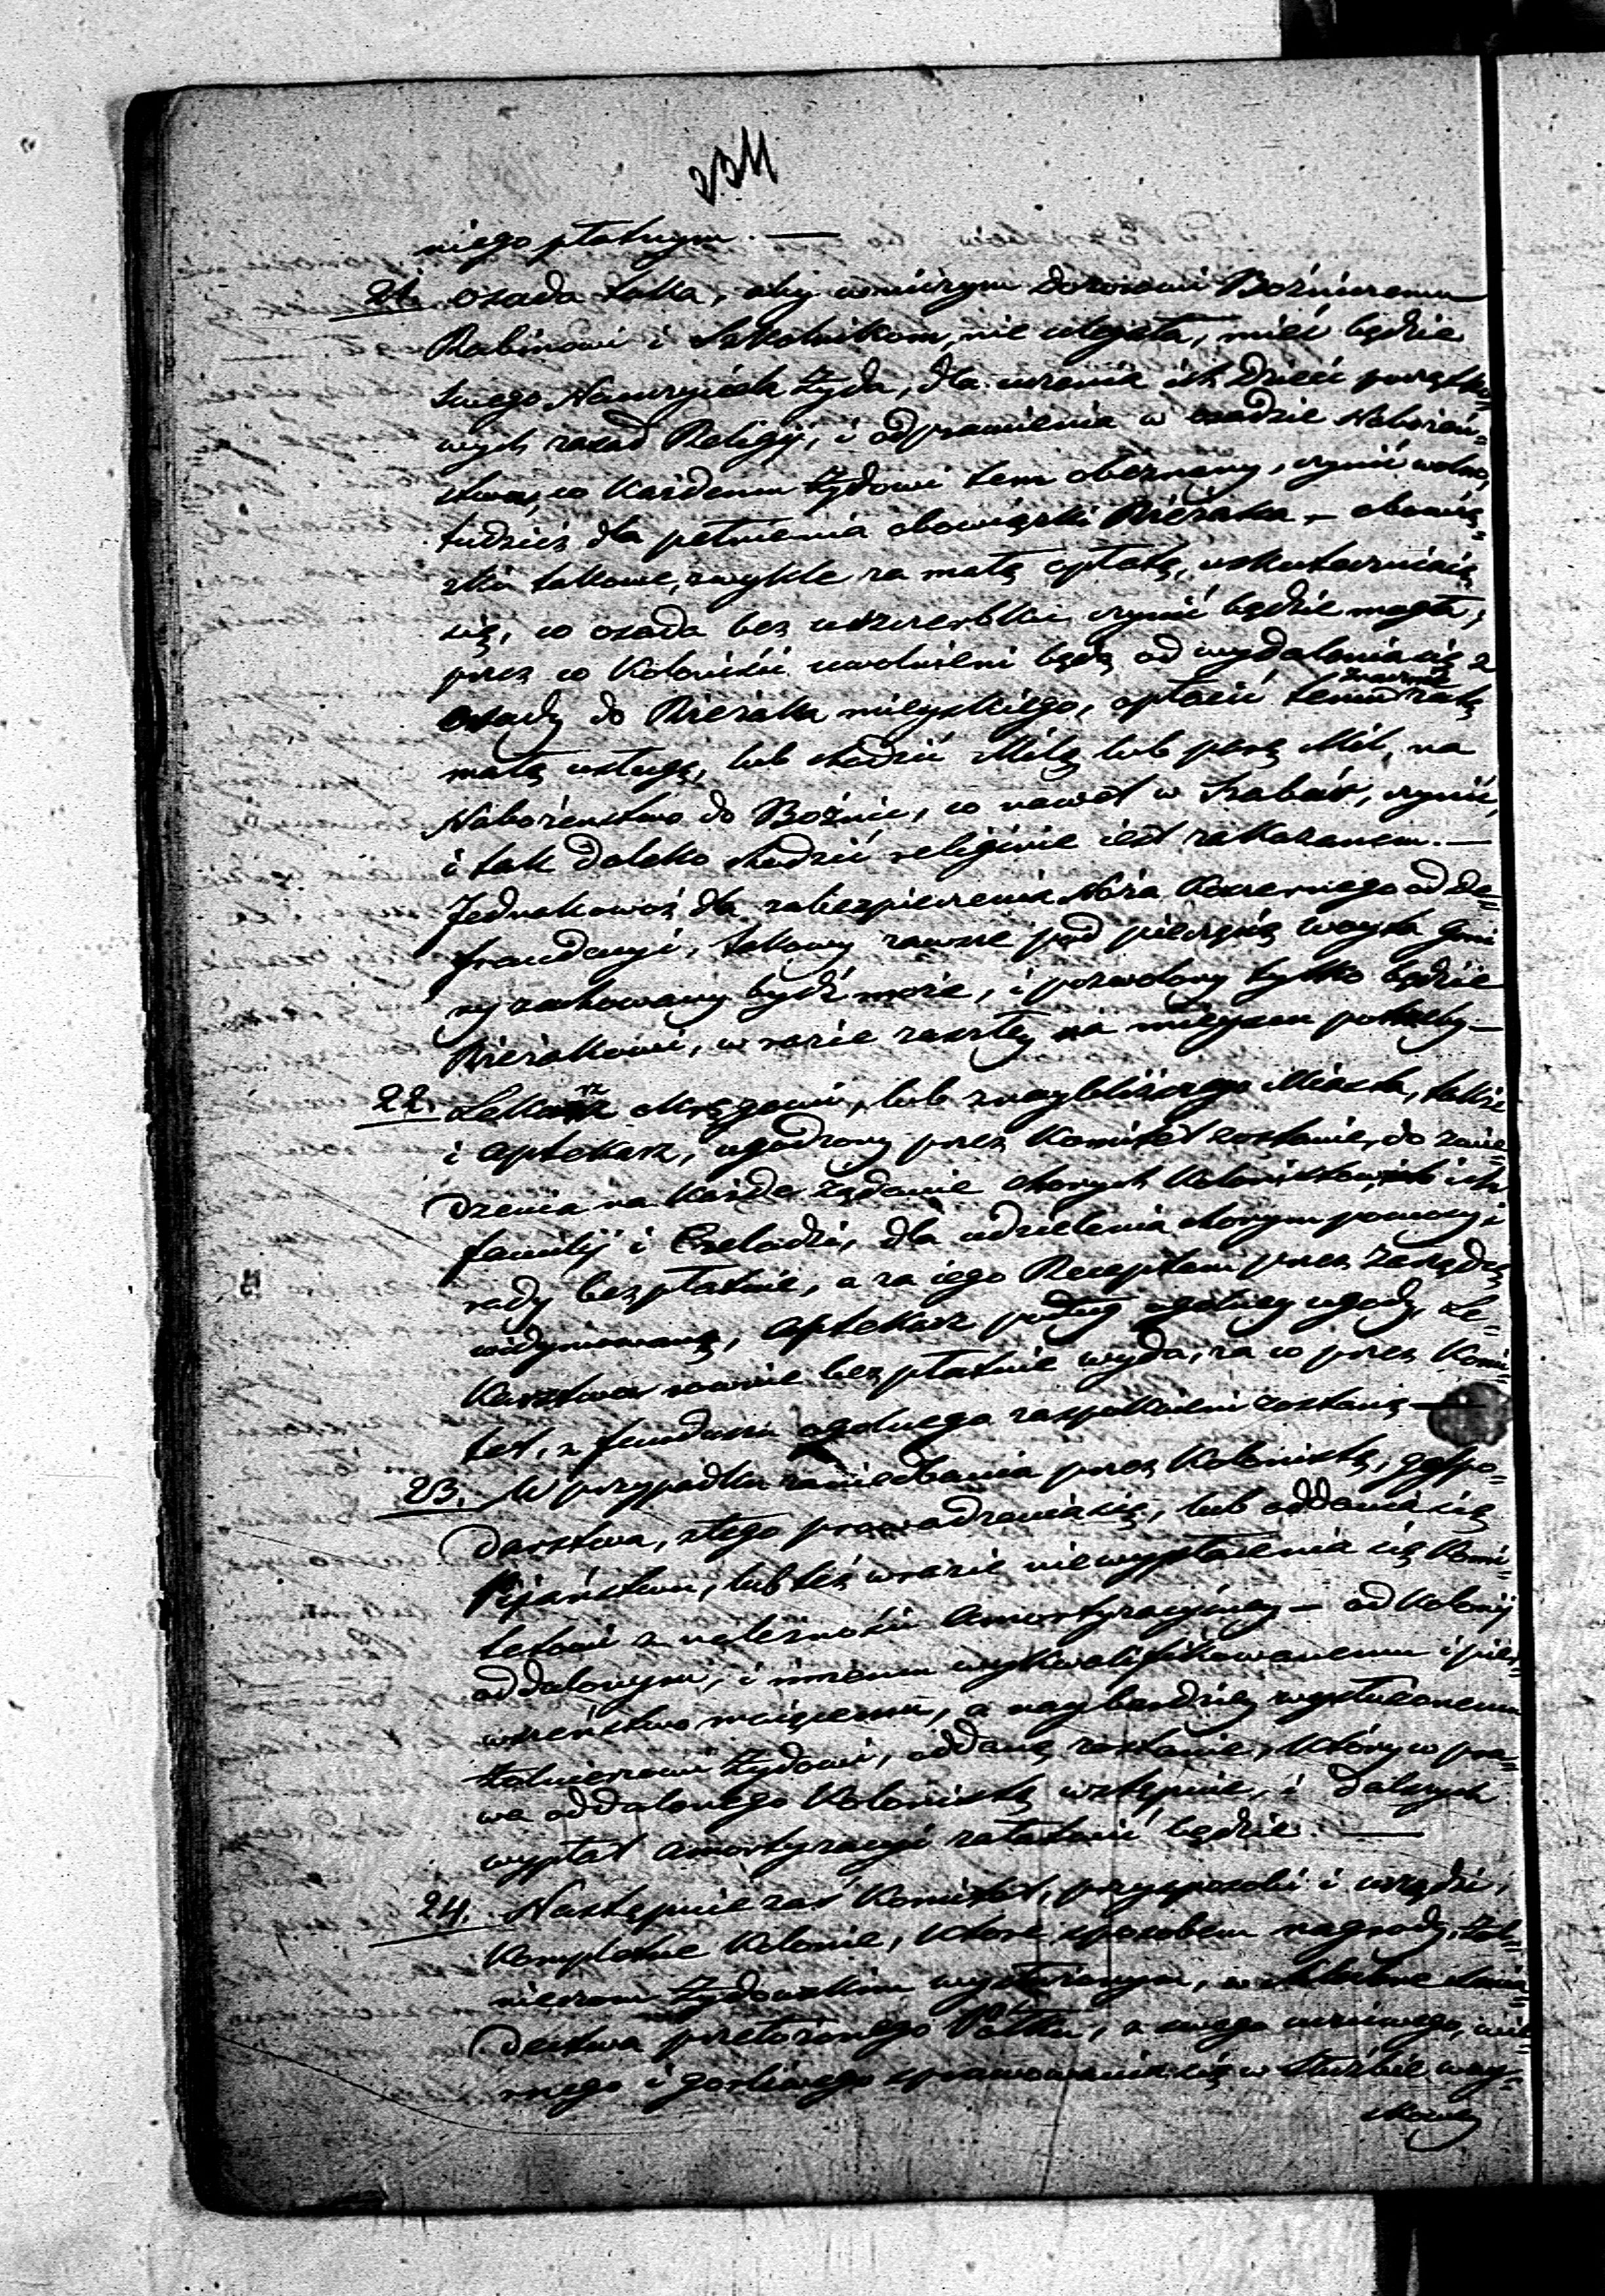 234
niego płatnym. —
21. Osada taka, aby w niczym Dozorowi Bożniczemu
Rabinowi i Szkolnikom, nie uległa, mieć będzie
swego Nauczyciela Żyda, dla uczenia ich Dzieci początko=
wych zasad Religij, i odprawienia w osadzie Nabożeń=
stwa, co każdemu Żydowi tem obeznany, czynić wolno,
tudzież dla pełnienia obowiązki Rzezaka, — obowią=
zki takowe, zwykle za małą opłatą, uskuteczniaią
się, co osada bez uszczerbku czynić będzie mogła,
przez co Koloniści uwolnieni będą od wydalania się z
osady do Rzezaka mieyskiego, opłacić temu znacznie za tą
małą usługę, lub chodzić Milę lub parę Mil, na
Nabożeństwo do Bożnic, co nawet w Szabas, czynić,
i tak daleko chodzić religiinie iest zakazanem. —
Jednakowoż dla zabezpieczenia Noża Koszernego od de=
fraudacyi, takowy zawsze pod pieczęcią Woyta Gmi
ny zachowany bydź może, i pozwolony tylko będzie
Rzezakowi, w razie zaszłey na mieyscu potrzeby —
22. Lekarz Okręgowi, lub z naybliższego Miasta, także
i Aptekarz, ugodzony przez Komitet zostanie, do zwie=
dzenia na każde żądanie chorych Kolonistów, ich
familij i Czeladzi, dla udzielenia chorym pomocy i
rady bezpłatnie, a za iego Receptam przez Zarządzcę
widymowaną, Aptekarz podług ogólney ugody, Le=
karstwa rownie bezpłatnie wyda, za co przez Komi=
tet, z funduszu ogolnego zaspokoieni zostaną —
23. W przypadku zaniedbania przez Kolonistę, gospo=
darstwa, złego prowadzenia się, lub oddania się
Pijaństwu, lub też w razie niewypłacenia się Komi=
tetowi z należności Amortyzacyiney — od Kolonij
oddalonym, i innemu wykwalifikowanemu i pier=
wszeństwo maiącemu, a naybardziey wysłużonemu
Żołnierzowi Żydowi, oddaną zostanie, który w pra=
wa oddalonego Kolonistę wstąpnie, i dalszych
wypłat Amortyzacyi załatwić będzie. —
24. Następnie zaś Komitet, przysposobi i urządzi,
kompletne Kolonie, które sposobem nagrody, Żoł=
nierzom Żydowskim wysłużonym, w chlubne świa=
dectwa przełożonego Pólku, z swego uczciwego, wie=
rnego i gorliwego sprawowania się w Służbie woy=
skowey